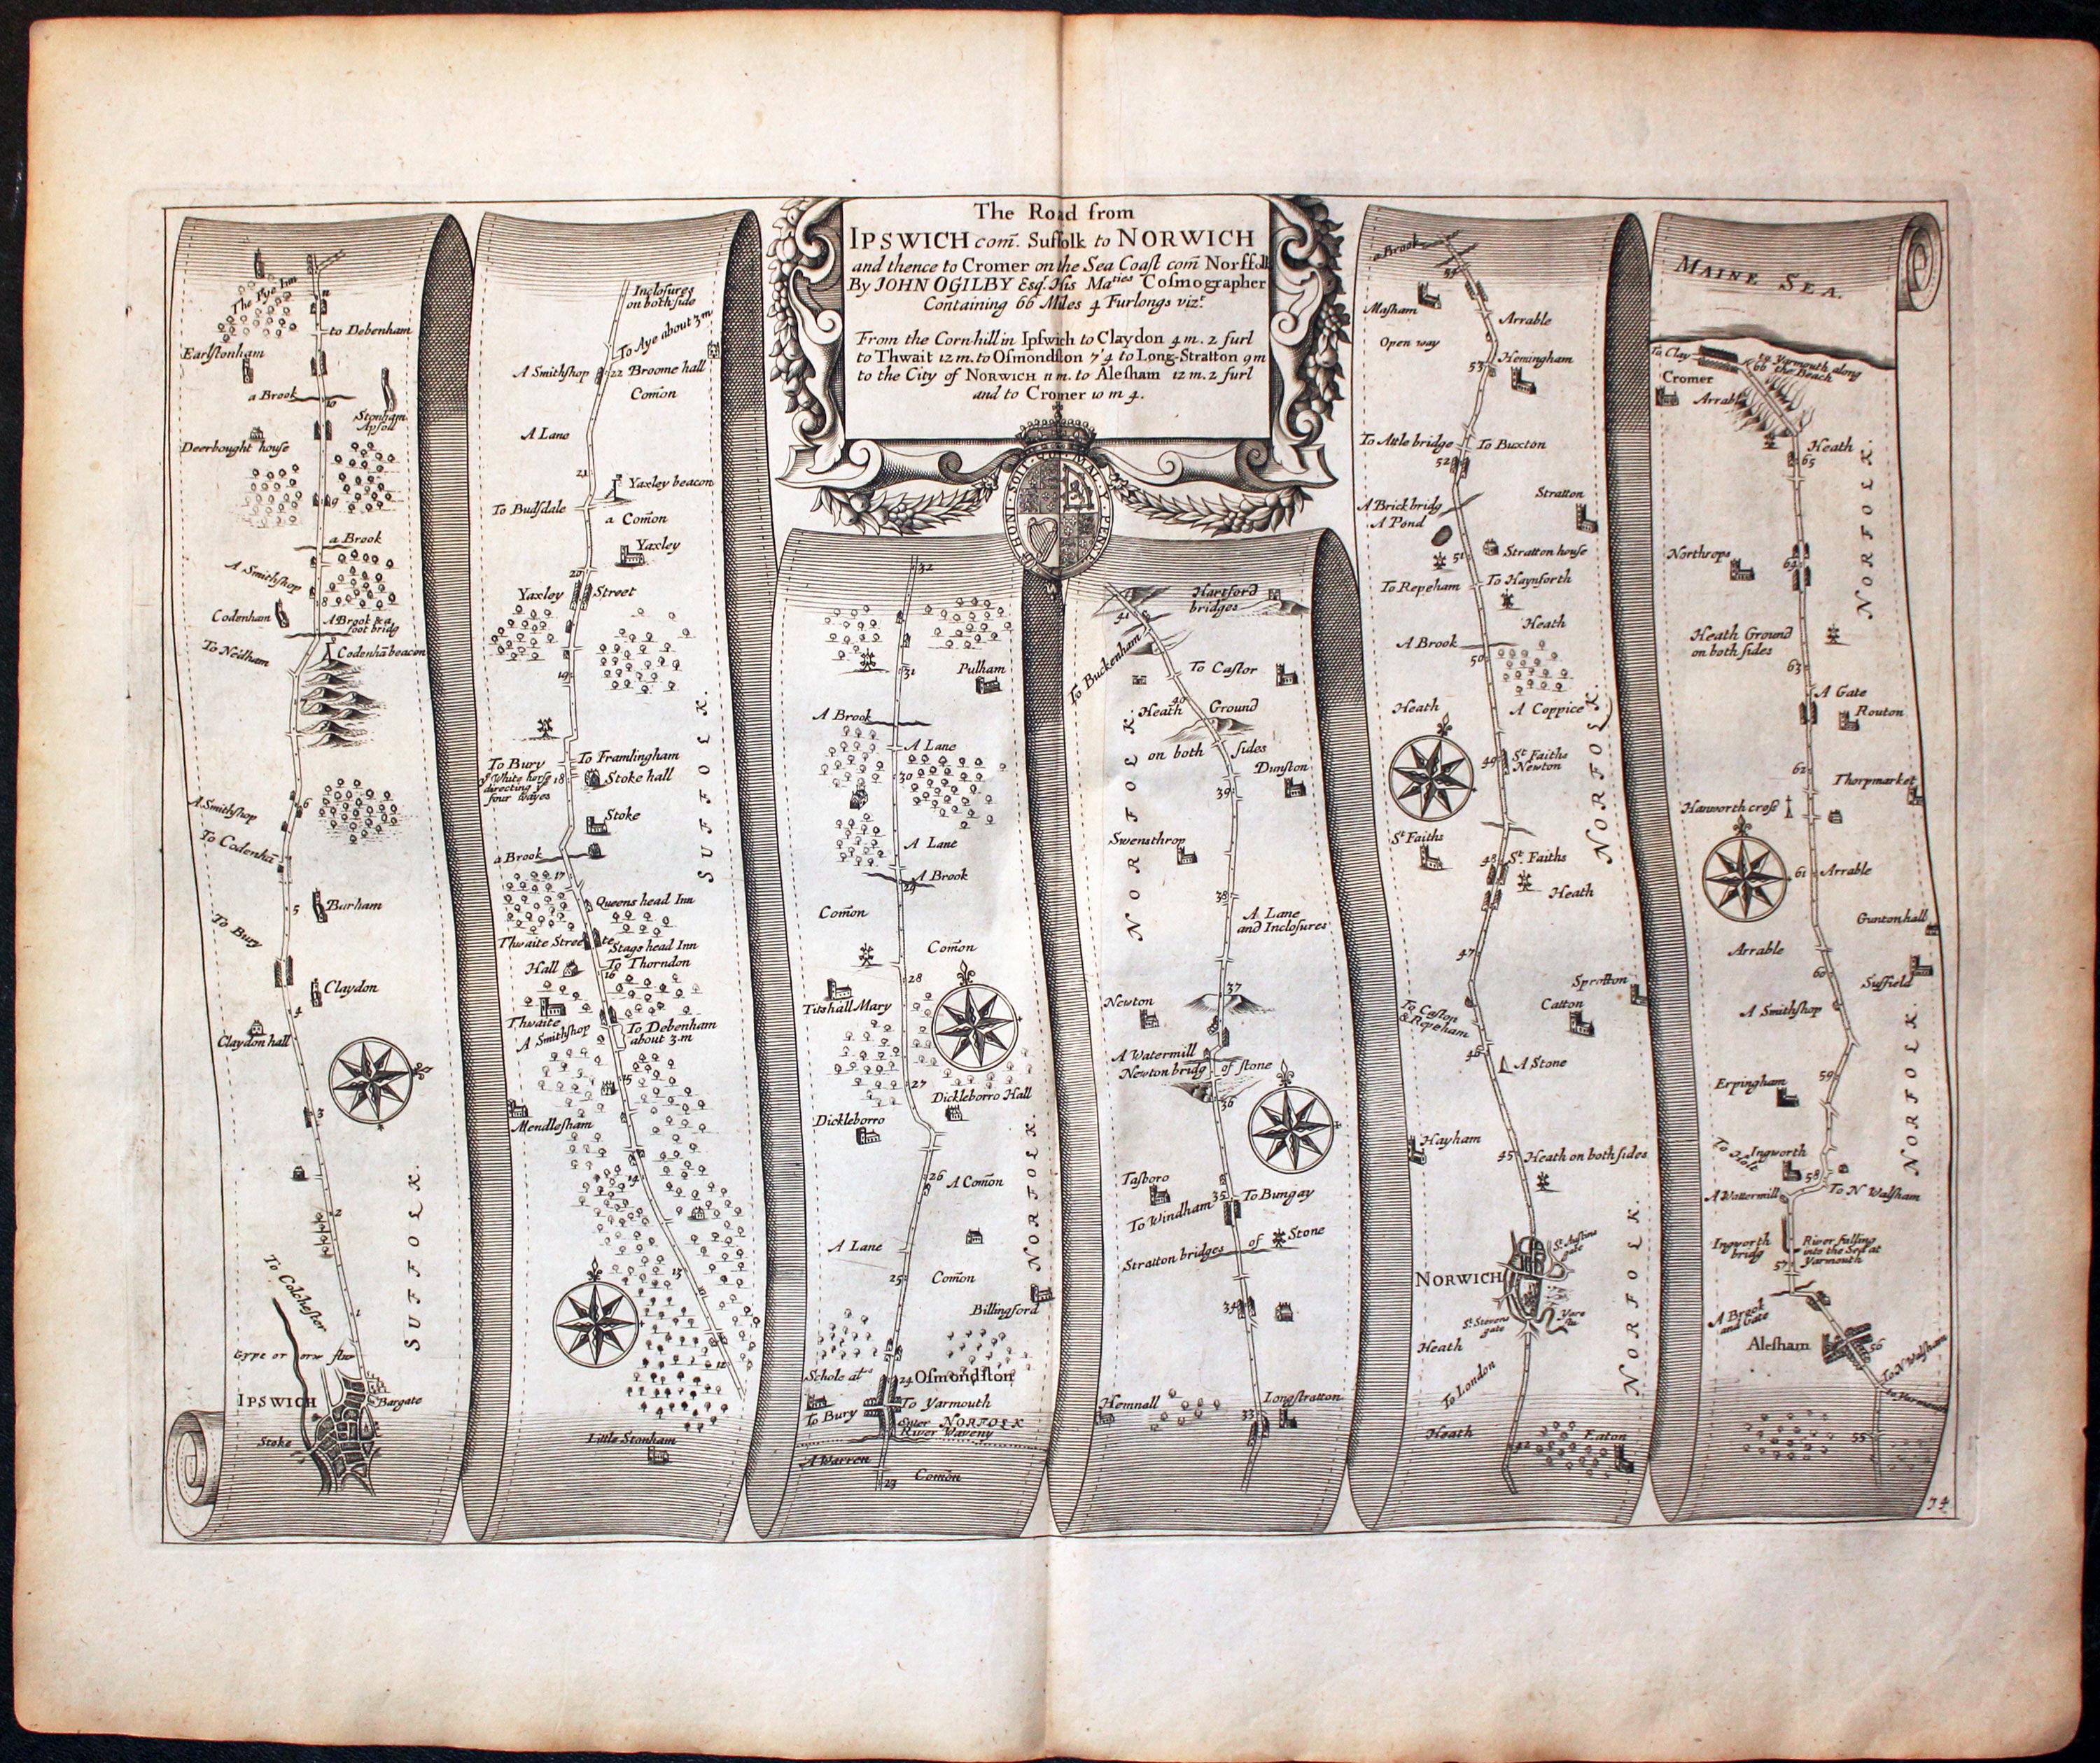 The Road from
IPSWICH com̃. Suffolk to NORWICH
and thence to Cromer on the Sea Coast com̃ Norffolk
By JOHN OGILBY Esqr. His Maties Cosmographer
Containing 66 Miles 4 Furlongs vizt.
From the Cornhill in Ipswich to Claydon 4 m. 2 furl
to Thwait 12 m. to Osmondston 7'4 to Long-Stratton 9 m
to the City of NORWICH 11 m. to Alesham 12 m. 2 furl
and to Cromer 10 m 4.
The Pye Inn
11
to Debenham
Earlstonham
a Brook
10
Stonham
Apsoll
Deerbought house
9
a Brook
A Smithshop
8
Codenham
A Brook & a
foot bridg
To Nedham
Codenhã beacon
7
A Smithshop
6
To Codenhã
5
Burham
To Bury
Claydon
4
Claydon hall
3
2
SUFFOLK
To Colchester
1
IPSWICH
Bargate
Stoke
Inclosures
on both side
To Aye about 3 m
A Smithshop
22 Broome hall
Com̃on
A Lane
21
Yaxley beacon
To Budsdale
a Com̃on
Yaxley
20
Yaxley Street
19
SUFFOLK.
To Bury
To Framlingham
ye White horse
18
Stoke hall
directing
four wayes
Stoke
a Brook
17
Queens head Inn
Thwaite Streete
Stags head Inn
Hall
To Thorndon
16
Thwaite
A Smithshop
To Debenham
about 3.m
15
Mendlesham
14
13
12
Little Stonham
32
31
Pulham
A Brook
A Lane
30
A Lane
A Brook
29
Com̃on
Com̃on
28
Titshall Mary
27
Dickleborro Hall
Dickleborro
26
A Com̃on
NORFOLK
A Lane
25
Com̃on
Billingsford
Schole als
24 Osmondston
To Bury
To Yarmouth
Enter NORFOLK
River Waveny
A Warren
23
Com̃on
Hartford
bridges
41
To Buckenham
To Castor
40
Heath Ground
on both sides
Dunston
39
NORFOLK.
Swensthrop
38
A Lane
and Inclosures
37
Newton
A Watermill
Newton bridg of stone
36
Tasboro
35
To Bungay
To Windham
Stratton bridges of Stone
34
Hemnall
Longstratton
33
a Brook
54
Masham
Arrable
Open way
53
Hemingham
To Attle bridge
To Buxton
52
A Brick bridg
Stratton
A Pond
51
Stratton house
To Repeham
To Haynforth
Heath
A Brook
50
Heath
A Coppice
NORFOLK.
49
St. Faiths
Newton
St Faiths
48
St. Faiths
Heath
47
Sprofton
To Caston
& Repeham
Catton
46
A Stone
Hayham
45
Heath on both sides
St. Austins
gate
NORWICH
St. Stevens
gate
Yare
flu.
NORFOLK.
Heath
To London
Heath
42
Eaton
MAINE SEA.
To Clay
to Yarmouth along
the Beach
66
Cromer
Arrable
Heath
65
NORFOLK.
Northrops
64
Heath Ground
on both sides
63
A Gate
Routon
62
Thorpmarket
Hanworth cross
61
Arrable
Guntonhall
Arrable
60
Suffield
A Smithshop
59
Erpingham
NORFOLK.
To Holt
Ingworth
58
A Watermill
To N Walsham
Ingworth
bridg
River falling
into the Sea at
Yarmouth
57
A Brook
and Gate
Alesham
56
To N Walsham
to Yarmouth
55
74